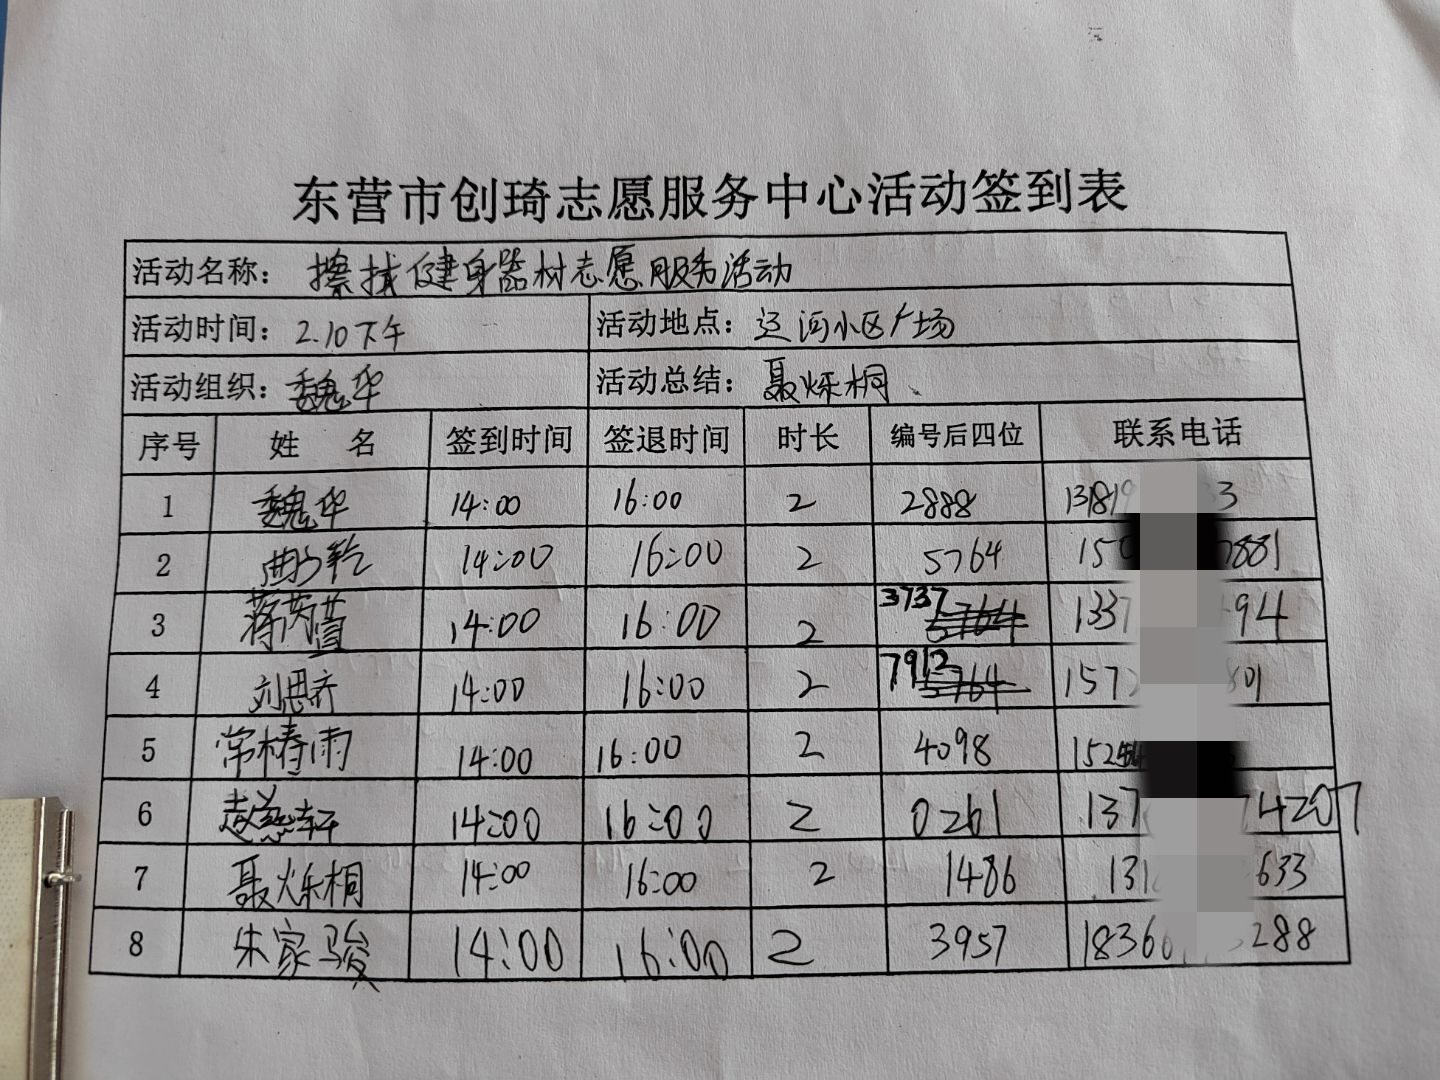 东营市创琦志愿服务中心活动签到表
活动名称: 擦拭健身器材志愿服务活动
活动时间: 2.10下午 活动地点: 运河小区广场
活动组织: 魏华 活动总结: 聂烁桐
序号 姓 名 签到时间 签退时间 时长 编号后四位 联系电话
1 魏华 14:00 16:00 2 2888 13819 33
2 14:00 16:00 2 5764 150 7881
3 蒋芮萱 14:00 16:00 2 3737 1337 94
4 刘思齐 14:00 16:00 2 7912 1572 801
5 常椿雨 14:00 16:00 2 4098 152
6 赵 轩 14:00 16:00 2 0261 137 4207
7 聂烁桐 14:00 16:00 2 1486 131 633
8 朱家骏 14:00 16:00 2 3957 1836 288